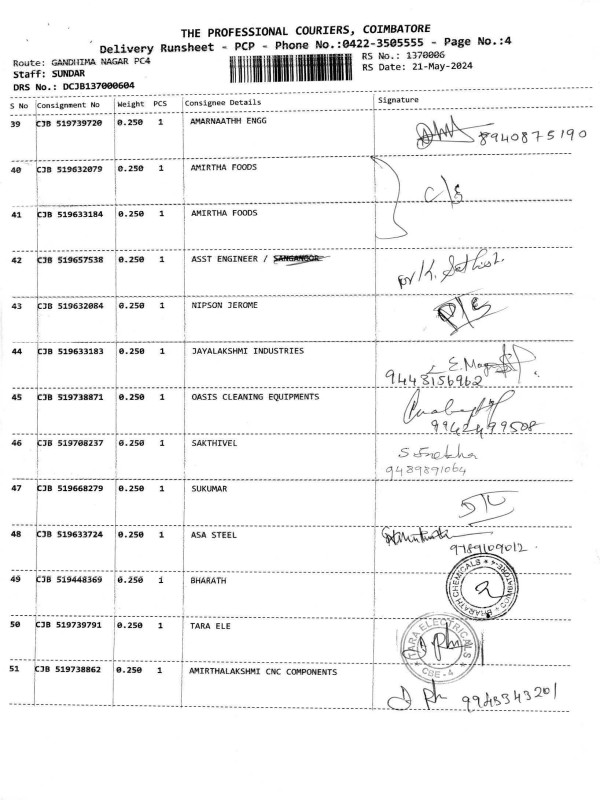 THE PROFESSIONAL COURIERS, COIMBATORE
Delivery Runsheet - PCP - Phone No.:0422-3505555 - Page No.:4
Route: GANDHIMA NAGAR PC4
RS No.: 1370006
Staff: SUNDAR
RS Date: 21-May-2024
DRS No.: DCJB137000604
S No Consignment No Weight PCS Consignee Details Signature
39 CJB 519739720 0.250 1 AMARNAATHH ENGG 8940875190
40 CJB 519632079 0.250 1 AMIRTHA FOODS
C/S
41 CJB 519633184 0.250 1 AMIRTHA FOODS
42 CJB 519657538 0.250 1 ASST ENGINEER / SANGANOOR
43 CJB 519632084 0.250 1 NIPSON JEROME
44 CJB 519633183 0.250 1 JAYALAKSHMI INDUSTRIES
9443156962
45 CJB 519738871 0.250 1 OASIS CLEANING EQUIPMENTS
9942499508
46 CJB 519708237 0.250 1 SAKTHIVEL
9489891064
47 CJB 519668279 0.250 1 SUKUMAR
48 CJB 519633724 0.250 1 ASA STEEL
9789109012.
49 CJB 519448369 0.250 1 BHARATH
BHARATH CHEMICALS * COIMBATORE-4 *
50 CJB 519739791 0.250 1 TARA ELE
TARA ELECTRICALS
CBE - 4
51 CJB 519738862 0.250 1 AMIRTHALAKSHMI CNC COMPONENTS
9943343201